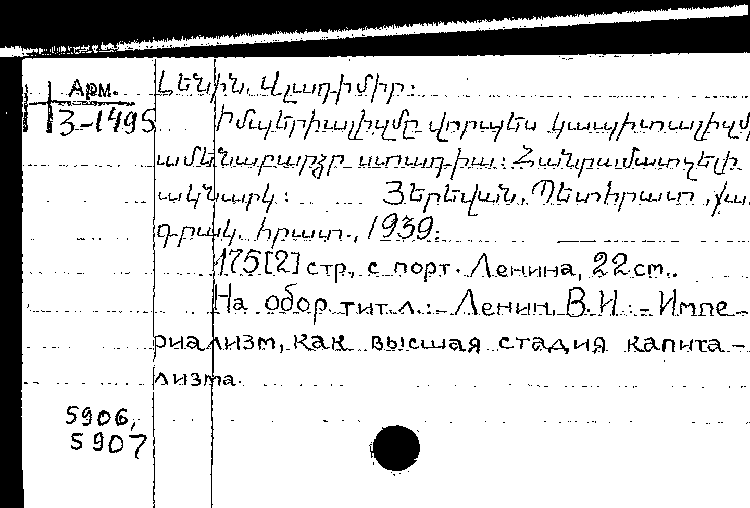 Арм.
3-1495
Լենին, Վլադիմիր:
Իմպերիալիզմը վորպես կապիտալիզմ
ամենաբարձր ստադիա: Հանրամատչելի
ակնարկ: Յերեվան, Պետհրատ,
գրակ. հրատ., 1939:
175[2] стр, с порт. Ленина, 22 см.
На обор. тит. л.:- Ленин, В.И.:- Импе-
риализм, как высшая стадия капита-
лизма.
5906,
5907